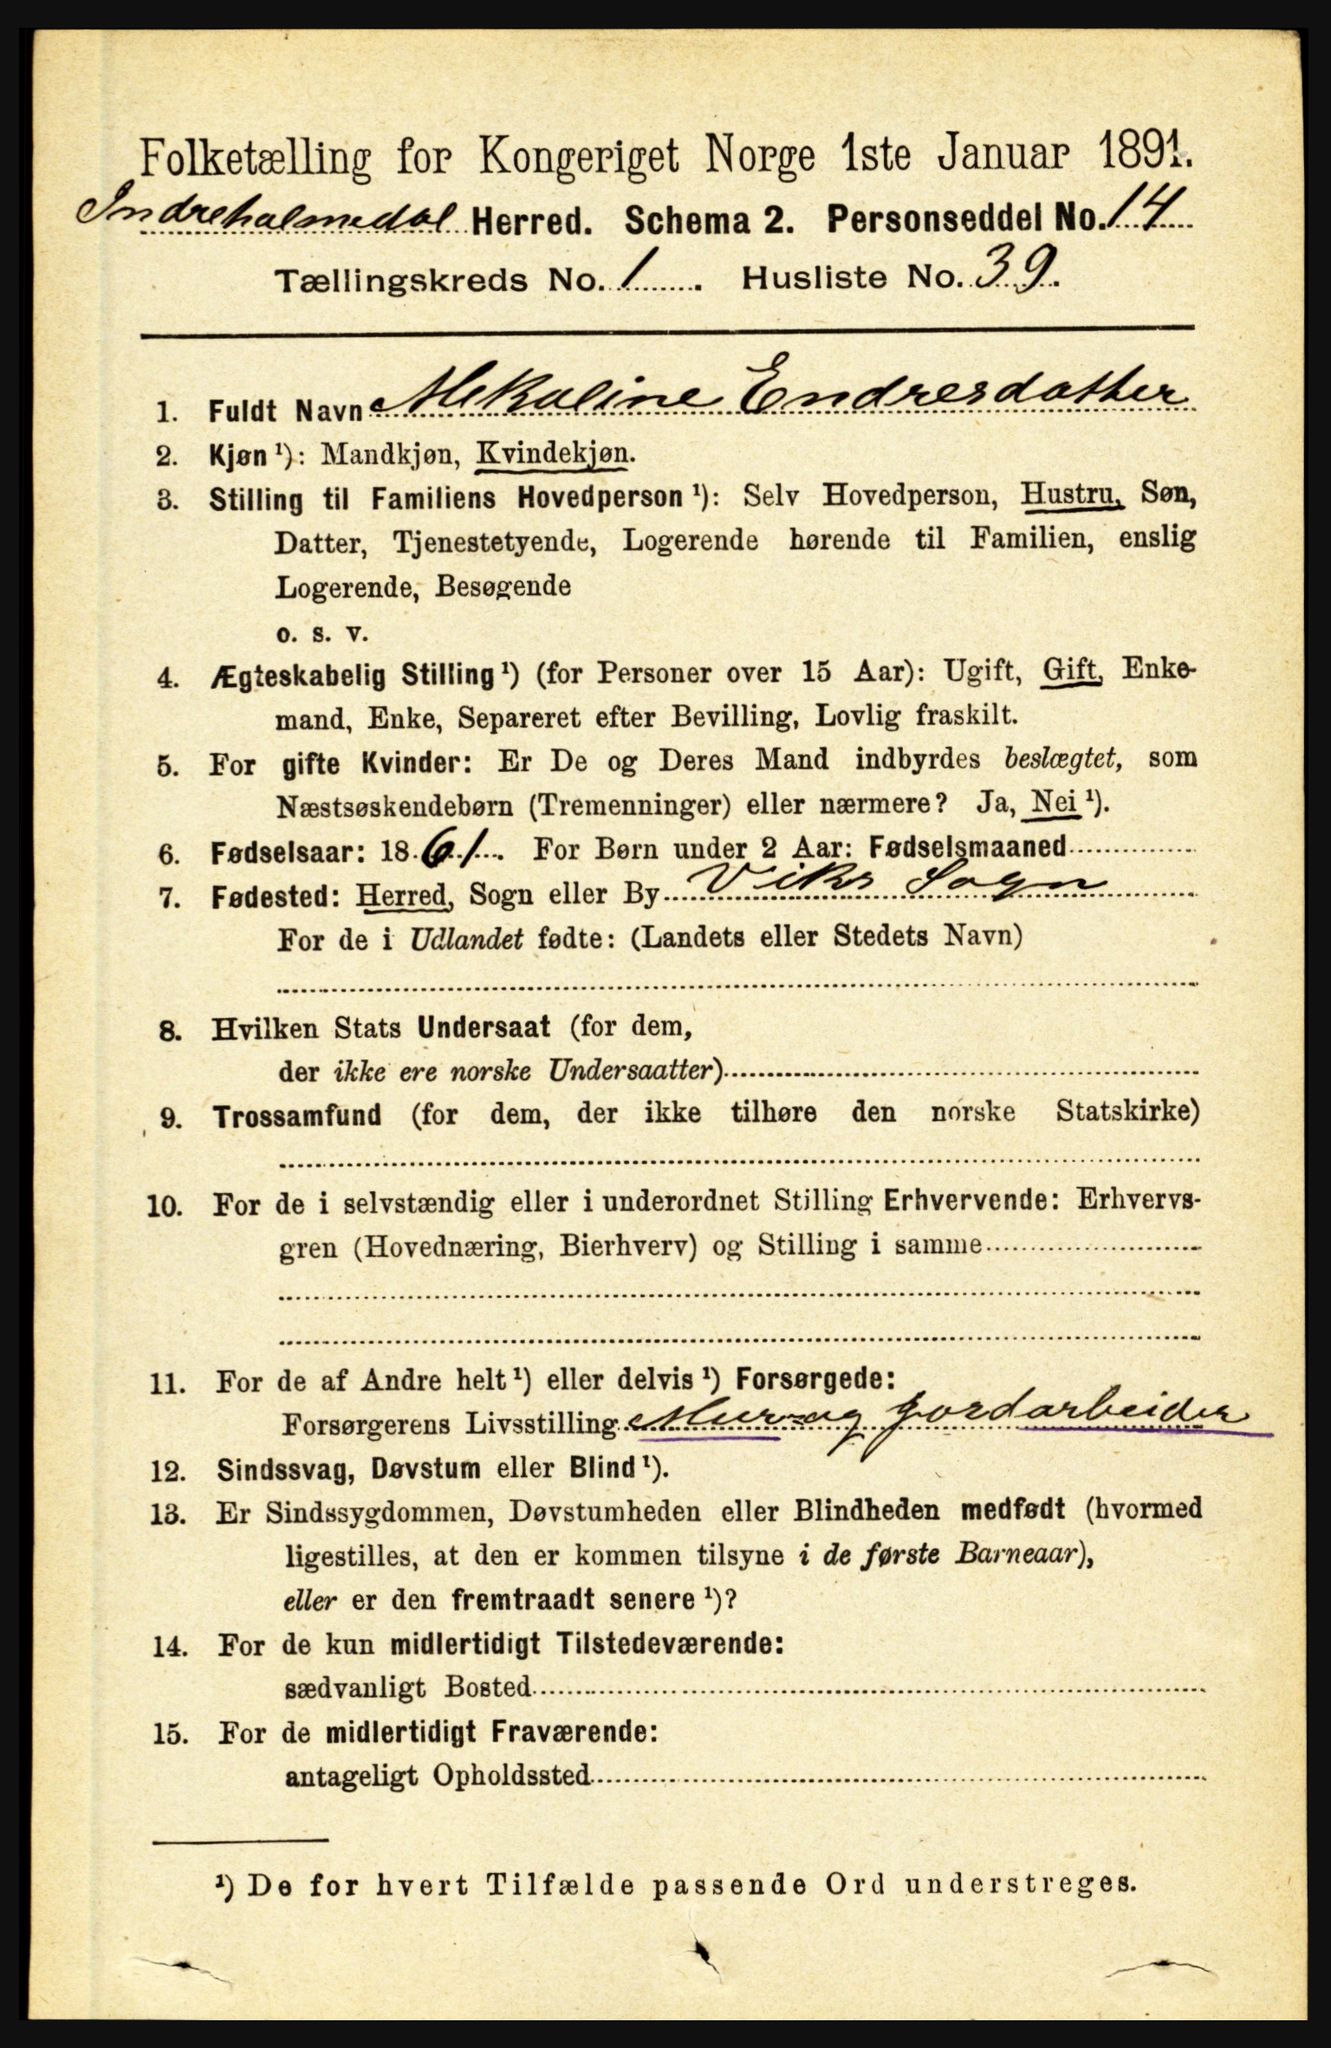 Folketælling for Kongeriget Norge 1ste Januar 1891.
Indreholmedal Herred. Schema 2. Personseddel No. 14
Tællingskreds No. 1. Husliste No. 39.
1. Fuldt Navn Mekaline Endresdatter
2. Kjøn ¹): Mandkjøn, Kvindekjøn.
3. Stilling til Familiens Hovedperson ¹): Selv Hovedperson, Hustru, Søn,
Datter, Tjenestetyende, Logerende hørende til Familien, enslig
Logerende, Besøgende
o. s. v.
4. Ægteskabelig Stilling ¹) (for Personer over 15 Aar): Ugift, Gift, Enke-
mand, Enke, Separeret efter Bevilling, Lovlig fraskilt.
5. For gifte Kvinder: Er De og Deres Mand indbyrdes beslægtet, som
Næstsøskendebørn (Tremenninger) eller nærmere? Ja, Nei ¹).
6. Fødselsaar: 1861. For Børn under 2 Aar: Fødselsmaaned
7. Fødested: Herred, Sogn eller By Viks Sogn
For de i Udlandet fødte: (Landets eller Stedets Navn)
8. Hvilken Stats Undersaat (for dem,
der ikke ere norske Undersaatter)
9. Trossamfund (for dem, der ikke tilhøre den norske Statskirke)
10. For de i selvstændig eller i underordnet Stilling Erhvervende: Erhvervs-
gren (Hovednæring, Bierhverv) og Stilling i samme
11. For de af Andre helt ¹) eller delvis ¹) Forsørgede:
Forsørgerens Livsstilling Mur- og jordarbeider
12. Sindssvag, Døvstum eller Blind ¹).
13. Er Sindssygdommen, Døvstumheden eller Blindheden medfødt (hvormed
ligestilles, at den er kommen tilsyne i de første Barneaar),
eller er den fremtraadt senere ¹)?
14. For de kun midlertidigt Tilstedeværende:
sædvanligt Bosted
15. For de midlertidigt Fraværende:
antageligt Opholdssted
¹) De for hvert Tilfælde passende Ord understreges.